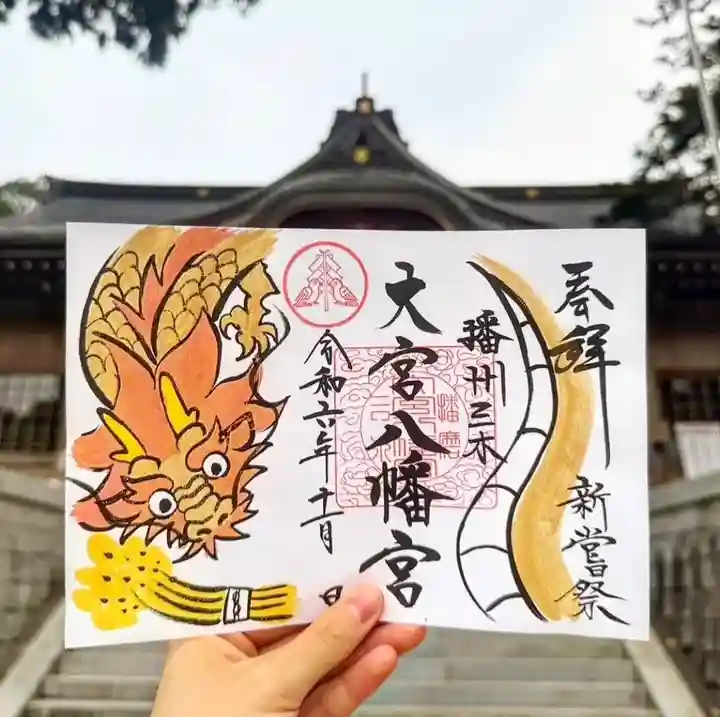 奉拝
新嘗祭
播州三木
大宮八幡宮
令和六年十一月
日
播磨